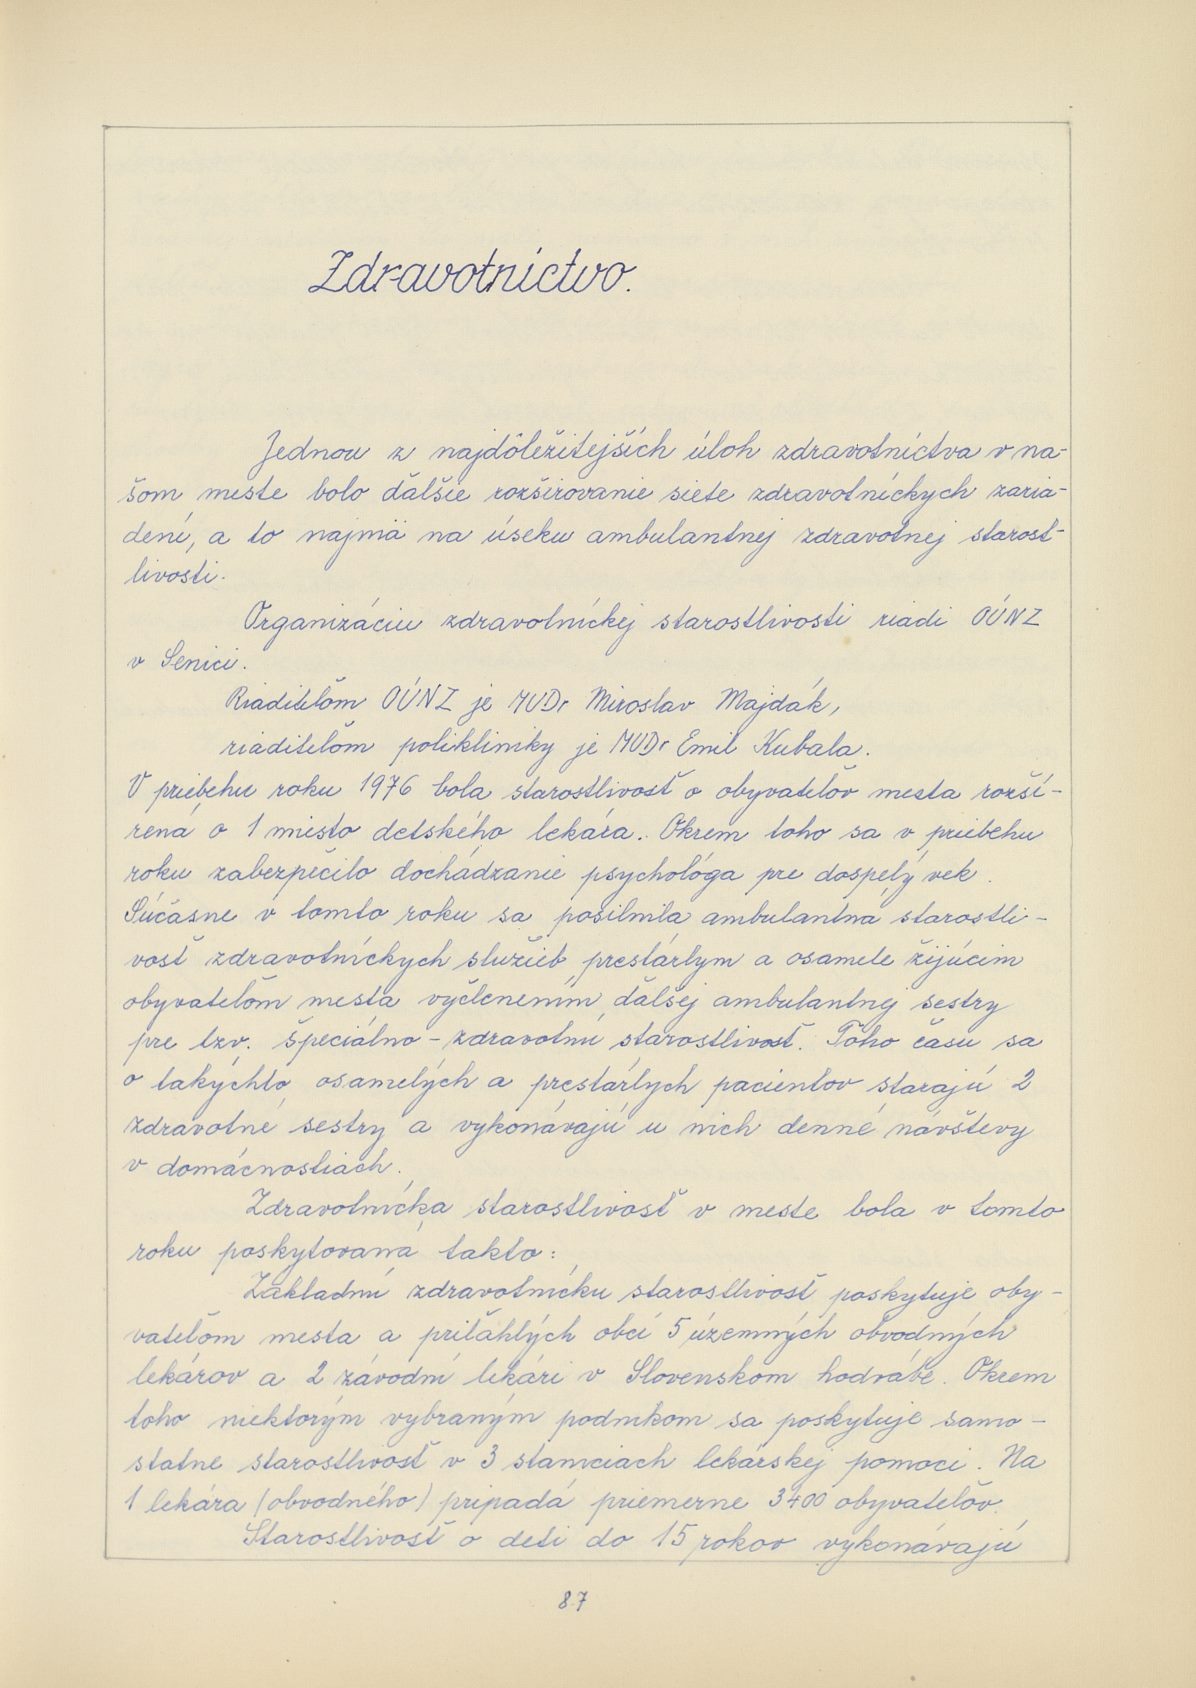 Zdravotníctvo.
Jednou z najdôležitejších úloh zdravotníctva v na-
šom meste bolo ďalšie rozširovanie siete zdravotníckych zaria-
dení, a to najmä na úseku ambulantnej zdravotnej starost-
livosti.
Organizáciu zdravotníckej starostlivosti riadi OÚNZ
v Senici.
Riaditeľom OÚNZ je MUDr Miroslav Majdák,
riaditeľom polikliniky je MUDr Emil Kubala.
V priebehu roku 1976 bola starostlivosť o obyvateľov mesta rozší-
rená o 1 miesto detského lekára. Okrem toho sa v priebehu
roku zabezpečilo dochádzanie psychológa pre dospelý vek.
Súčasne v tomto roku sa posilnila ambulantná starostli-
vosť zdravotníckych služieb prestárlym a osamele žijúcim
obyvateľom mesta vyčlenením ďalšej ambulantnej sestry
pre tzv. špeciálno-zdravotnú starostlivosť. Toho času sa
o takýchto osamelých a prestárlych pacientov starajú 2
zdravotné sestry a vykonávajú u nich denné návštevy
v domácnostiach.
Zdravotnícka starostlivosť v meste bola v tomto
roku poskytovaná takto:
Základnú zdravotnícku starostlivosť poskytuje oby-
vateľom mesta a priľahlých obcí 5 územných obvodných
lekárov a 2 závodní lekári v Slovenskom hodvábe. Okrem
toho niektorým vybraným podnikom sa poskytuje samo-
statne starostlivosť v 3 staniciach lekárskej pomoci. Na
1 lekára (obvodného) pripadá priemerne 3400 obyvateľov.
Starostlivosť o deti do 15 rokov vykonávajú
87